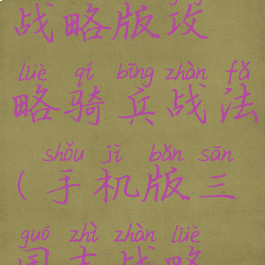 战略版攻
lüè qí bīng zhàn fǎ
略骑兵战法
shǒu jī bǎn sān
(手机版三
guó zhì zhàn lüè
国志战略